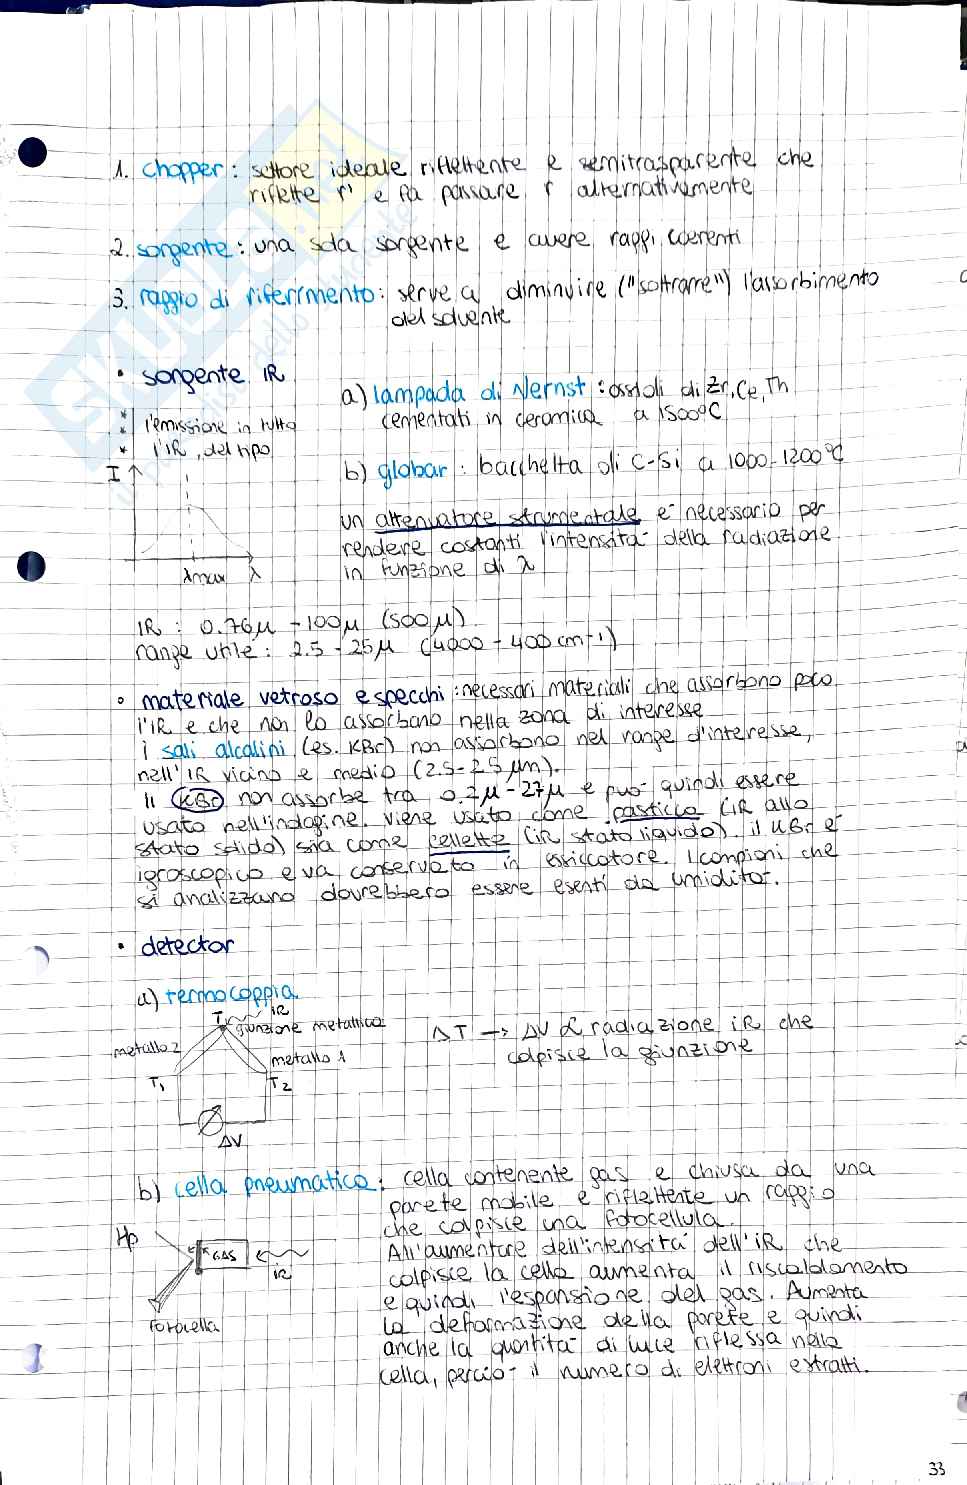 1. chopper : settore ideale riflettente e semitrasparente che
riflette r' e fa passare r alternativamente
2. sorgente : una sola sorgente e avere raggi coerenti
3. raggio di riferimento : serve a diminuire ("sottrarre") l'assorbimento
del solvente
• sorgente IR
l'emissione in tutto
l'IR, del tipo
I
λmax λ
a) lampada di Nernst : ossidi di Zr, Ce, Th
cementati in ceramica a 1500°C
b) globar : bacchetta di C-Si a 1000-1200°C
un attenuatore strumentale e' necessario per
rendere costanti l'intensità della radiazione
in funzione di λ
IR : 0.76μ - 100μ (500μ)
range utile : 2.5 - 25μ (4000 - 400 cm-1)
• materiale vetroso e specchi : necessari materiali che assorbono poco
l'IR e che non lo assorbano nella zona di interesse
i sali alcalini (es. KBr) non assorbono nel range d'interesse,
nell'IR vicino e medio (2.5-25 μm).
Il KBr non assorbe tra 0.2μ-27μ e può quindi essere
usato nell'indagine. viene usato come pasticca (IR allo
stato solido) sia come cellette (IR stato liquido). il KBr è
igroscopico e va conservato in essiccatore. I campioni che
si analizzano dovrebbero essere esenti da umidità.
• detector
a) termocoppia
T IR
giunzione metallica
metallo 2
metallo 1
T1 T2
ΔV
ΔT → ΔV ∝ radiazione IR che
colpisce la giunzione
b) cella pneumatica : cella contenente gas e chiusa da una
parete mobile e riflettente un raggio
che colpisce una fotocellula.
All'aumentare dell'intensità dell'IR che
colpisce la cella aumenta il riscaldamento
e quindi l'espansione del gas. Aumenta
la deformazione della parete e quindi
anche la quantità di luce riflessa nella
cella, perciò il numero di elettroni estratti.
GAS
IR
33